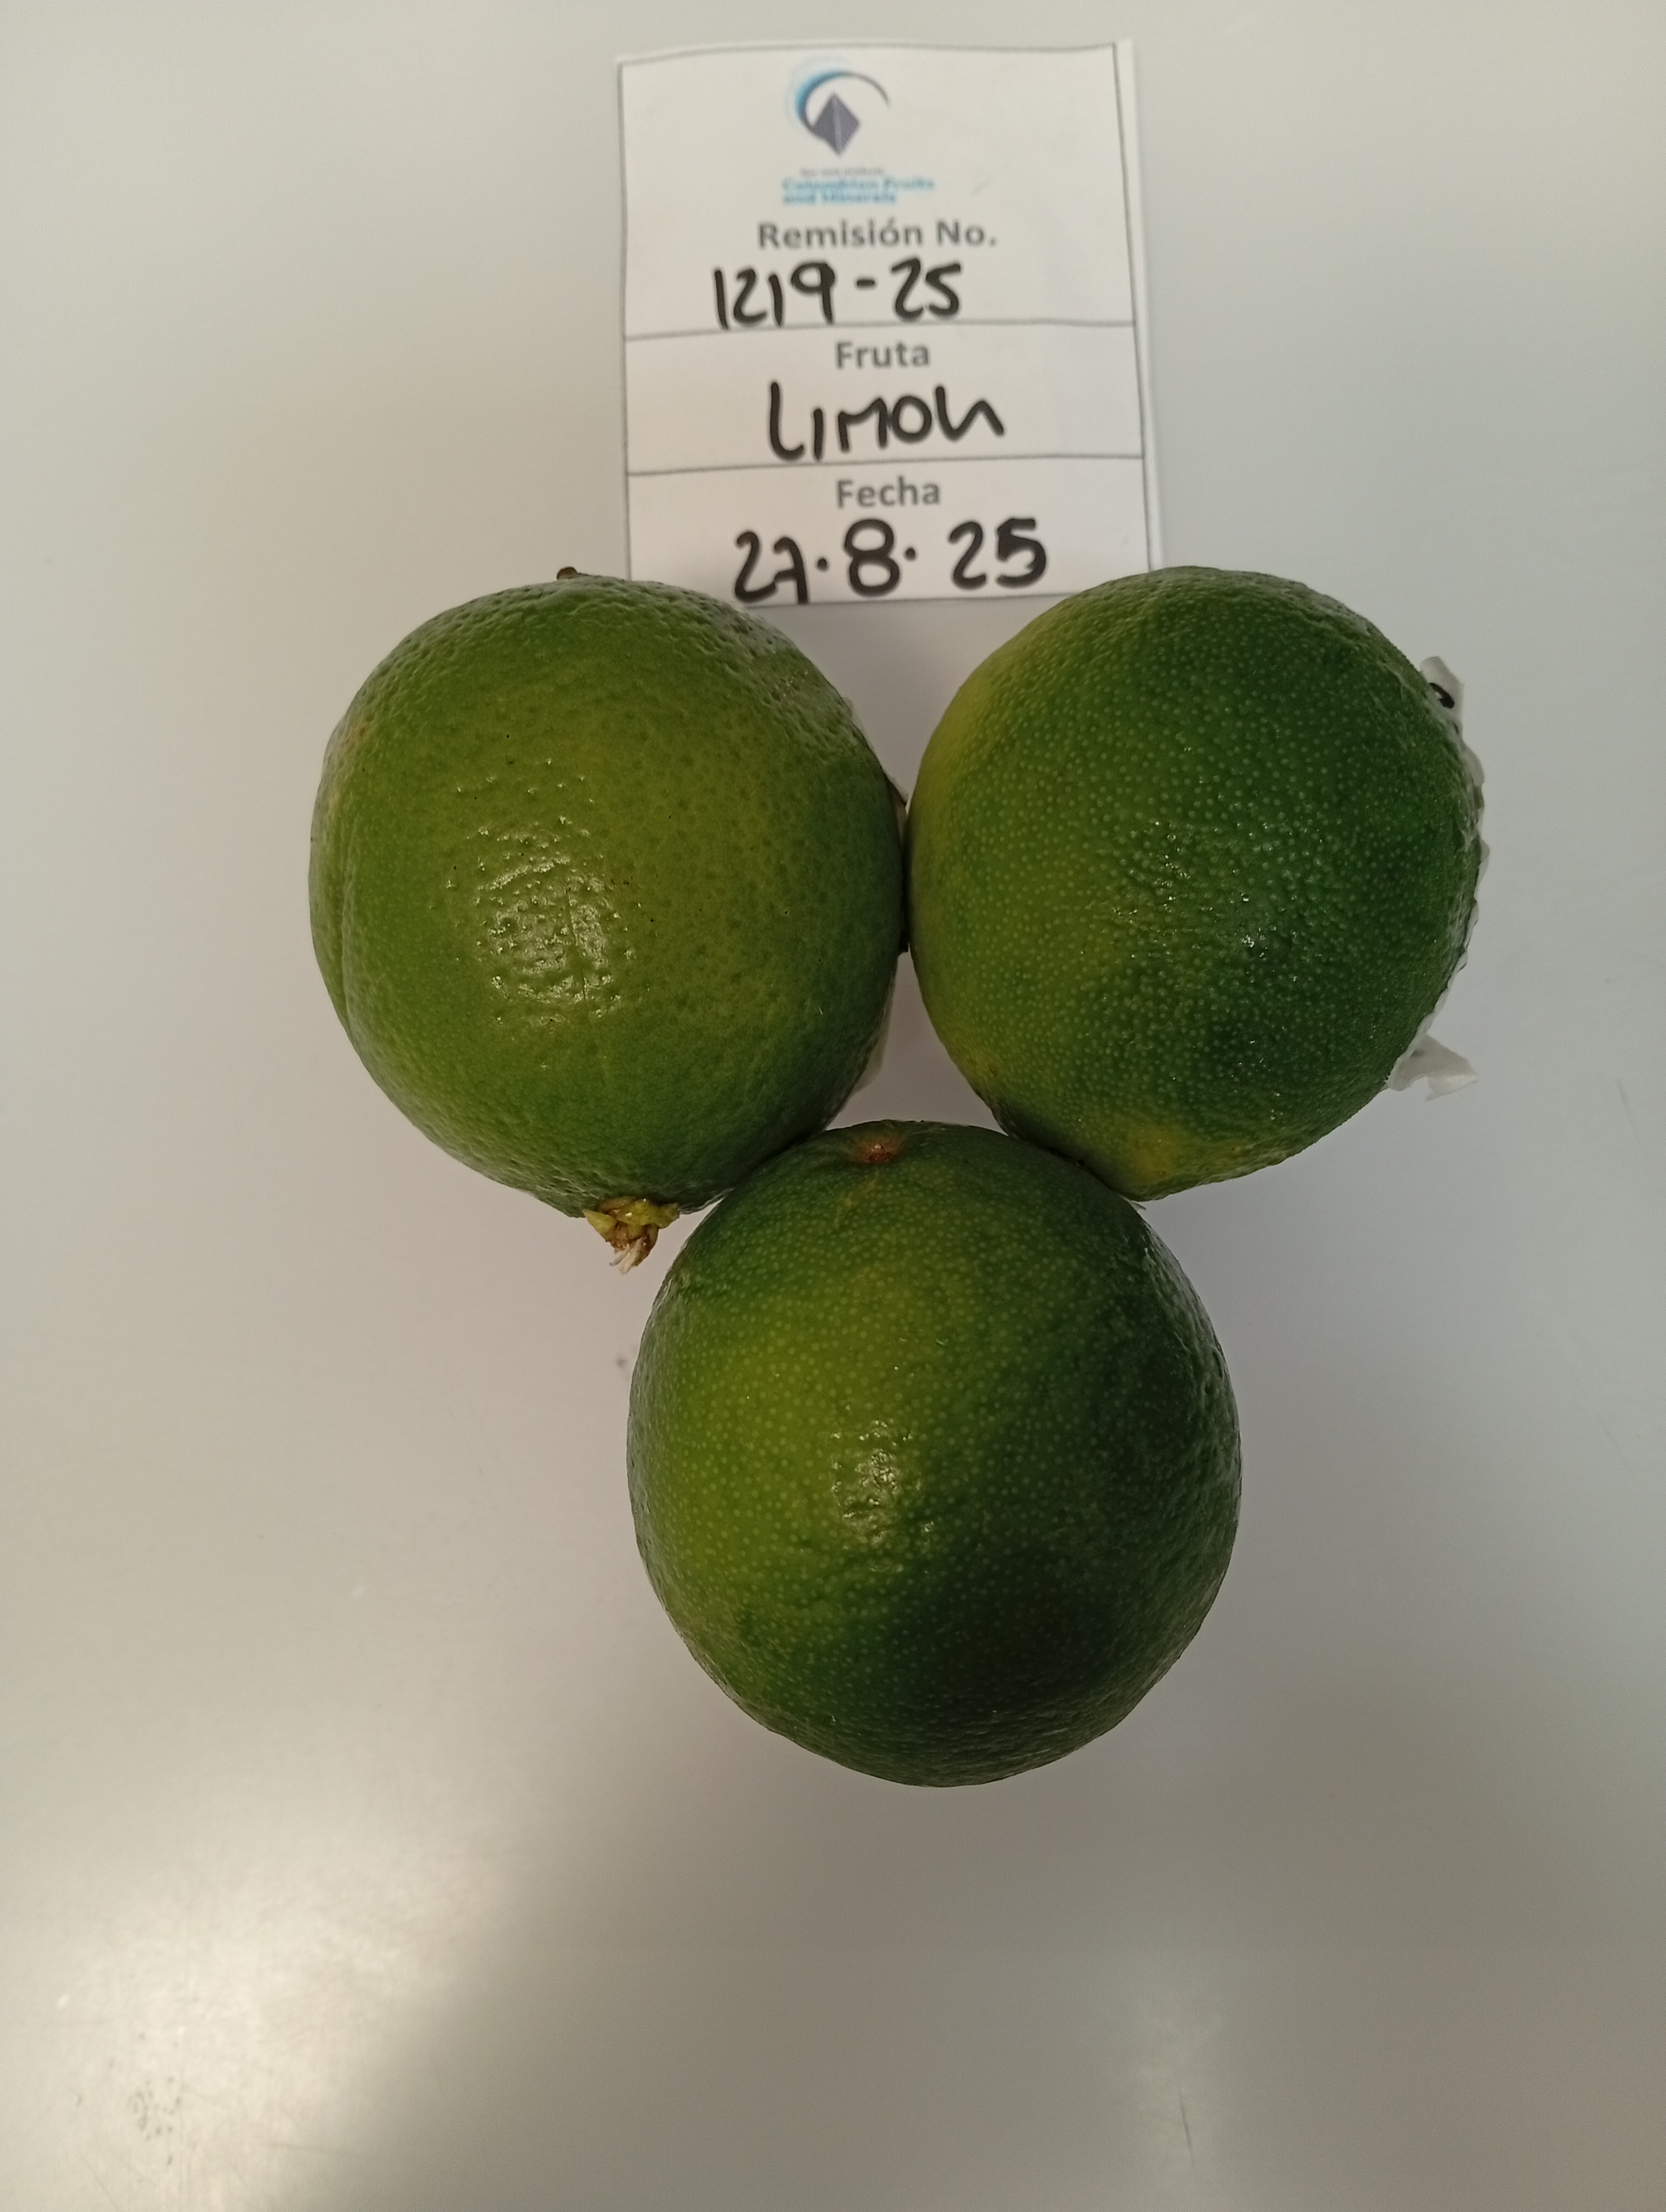 Colombian Fruits
and Minerals
Remisión No.
1219-25
Fruta
LIMON
Fecha
27.8.25